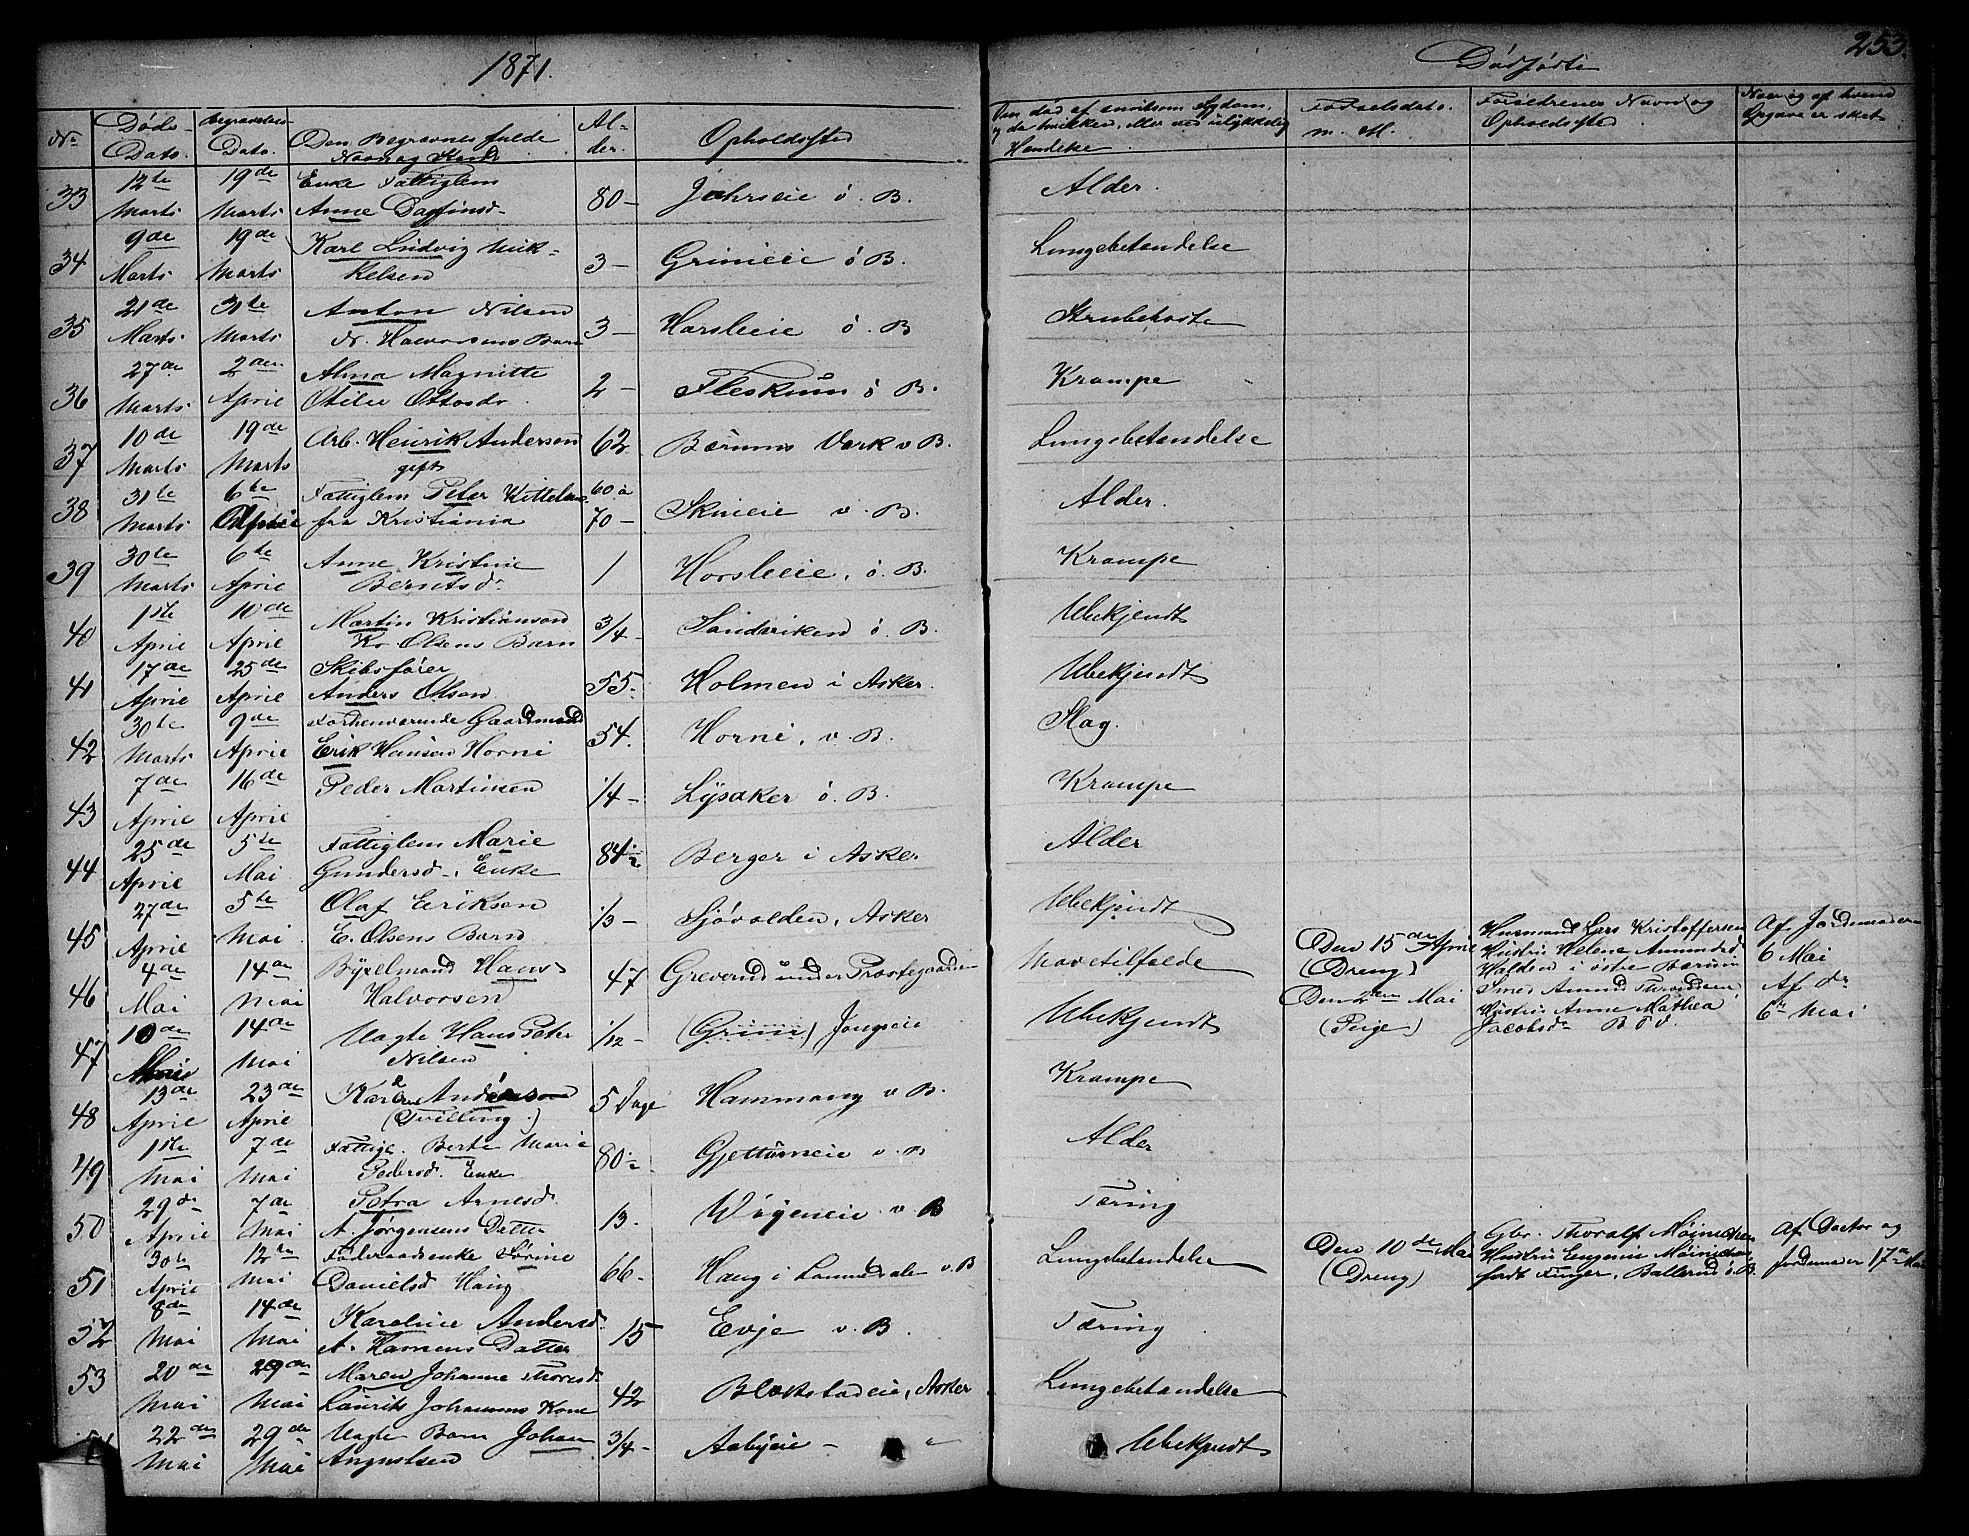 1871.
Dødfødte 253.
No
Døds-Dato.
Begravelses-Dato.
Den Begravnes fulde Navn og
Alder.
Opholdssted
Om død af smitsom Sygdom, og da hvilken, eller ved ulykkelig Hændelse.
Fødselsdato. m. Kl.
Forældrenes Navn og Opholdssted
Naar og af hvem Opgave er sket
33 12te Marts 19de Marts Enke Fattiglem Anne Dagfinsd. 80 - ö. B. Alder.
34 9de Marts 19de Marts Karl Ludvig Mikkelsen 3 - Grinieie ö B. Lungebetændelse
35 21de Marts 31te Marts Anton Nilsen N. Halvorsens Barn 3 - Horsleeie ö. B Strubehoste
36 27de Marts 2den April Alma Magnitte Otilie Ottosdr. 2 - Fleskum ö B. Krampe
37 10de Marts 19de Marts Arb. Henrik Anderson gift 62 Bærums Værk v B. Lungebetændelse
38 31te Marts 6te April Fattiglem Peter Kittelsen fra Kristiania 60 à 70 - Skuieie v. B. Alder.
39 30te Marts 6te April Anne Kristine Berntsdr. 1 Horsleeie, ö. B. Krampe
40 1ste April 10de April Martin Kristianson Kr Olsens Barn 3/4 - Sandviken ö. B. Ubekjendt
41 17de April 25de April Skibsfører Anders Olsen 55 - Holmen i Asker. Ubekjendt
42 30te Marts 9de April Forhenværende Gaardmand Erik Hansen Horni 54. Horni, v. B. Slag.
43 7de April 16de April Peder Martinsen 1/4 - Lysaker ö. B. Krampe
44 25de April 5te Mai Fattiglem Marie Gundersd. Enke 84 1/2 Berger i Asker Alder
45 27de April 5te Mai Olaf Eriksen E. Olsens Barn 1/3 - Sjøvolden, Asker Ubekjendt
46 4de Mai 14de Mai Byxelmand Hans Halvorsen 47 Greverud under Præstegaarden Mavetilfælde
Den 15de April (Dreng) Husmand Lars Kristoffersen Hustru Helene Amundsd. Halden i östre Bærum Af Jordemoderen 6 Mai
47 10de Mai 14de Mai Uægte Hans Peter Nilsen 1/12 - (Grini) Jongseie Ubekjendt
Den 2den Mai (Pige) Smed Amund Hustru Anne Mathea Jacobsdr. Af do 6te Mai
48 13de April 23de April Karl Anderson (Tvilling.) 5 Dage Hammang v B. Krampe
49 1ste Mai 7de Mai Fattigl. Berte Marie Pedersd. Enke 80 1/2 Gjettumeie v. B Alder
50 29de April 7de Mai Petra Arnesd. A. Jørgensens Datter 13. Wöyeneie v B Tæring
51 30te April 12te Mai Föderaadsenke Sörine Danielsd Haug 66 - Haug i Lommedalen v. B Lungebetændelse
Den 10de Mai (Dreng) Gbr. Thoralf Møinichen Hustru Eugenie Møinichen födt Finger, Ballerud ö. B. Af Doctor og Jordemoder 17de Mai
52 8de Mai 14de Mai Karoline Andersd. A. Hansens Datter 15 Evje v. B. Tæring
53 20de Mai 29de Mai Maren Johanne Thoresd. Laurits Johansens Kone 42 Blakstadeie, Asker Lungebetændelse
54 22de Mai 29de Mai Uægte Barn Johan Augustsen 3/4 - Aabyeie - " Ubekjendt